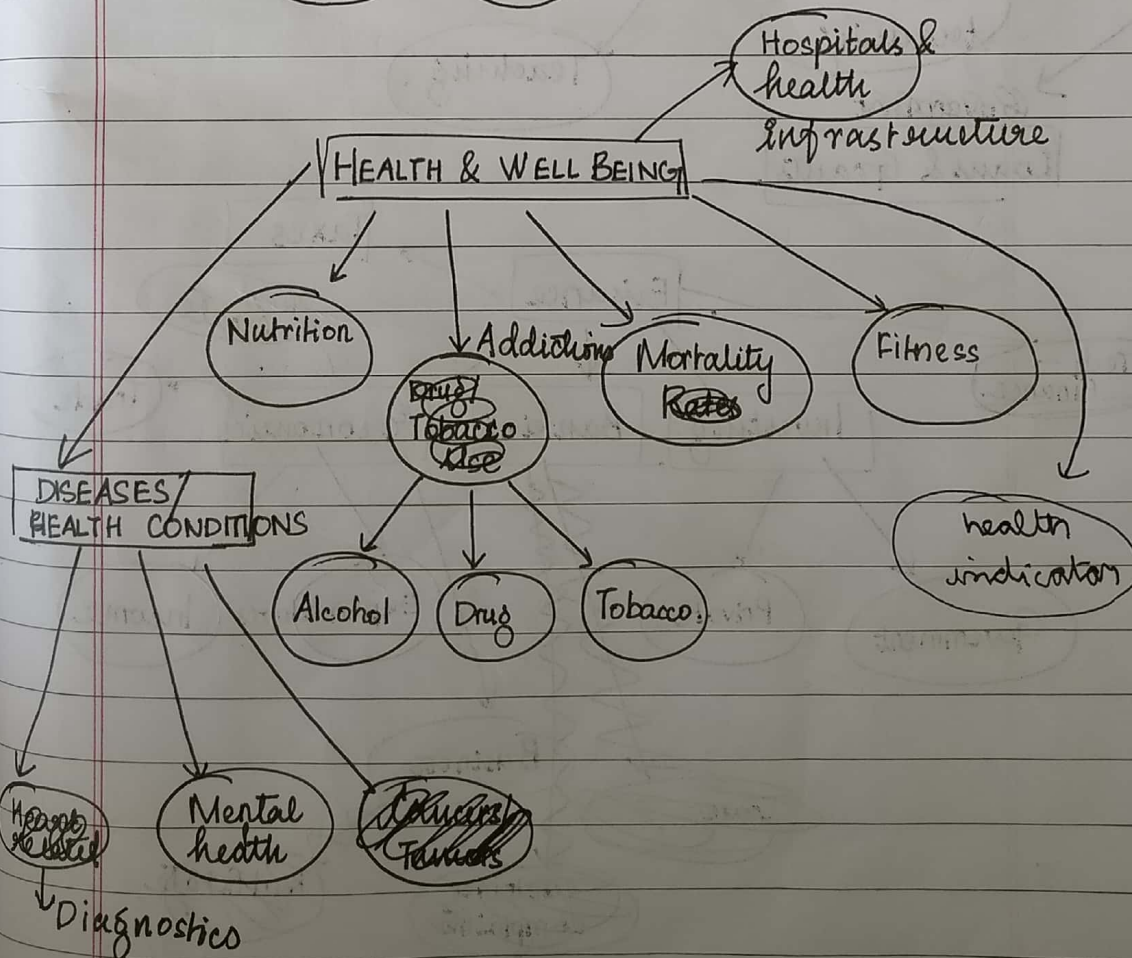 Hospitals &
health
infrastructure
HEALTH & WELL BEING
Nutrition
Addictions
Drug/
Tobacco
Use
Mortality
Rates
Fitness
DISEASES/
HEALTH CONDITIONS
health
indicators
Alcohol
Drug
Tobacco.
Mental
health
Tumors
Diagnostics